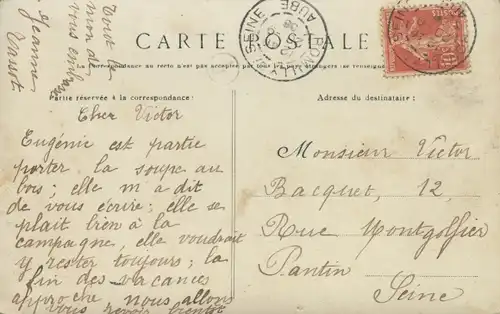 CARTE POSTALE
La Correspondance au recto n'est pas acceptée par tous les pays étrangers (se renseigner
Partie réservée à la correspondance:
Adresse du destinataire:
Cher Victor
Eugénie est partie
porter la soupe au
bois; elle m a dit
de vous écrire; elle se
plait bien à la
campagne, elle voudrait
y rester toujours; la
fin des vacances
approche, nous allons
vous revoir bientôt
Tout le
mon de
vous emb
Jeanne
Monsieur Victor
Bacquet, 12,
Rue Montgolfier
Pantin
Seine
SEINE
AUBE